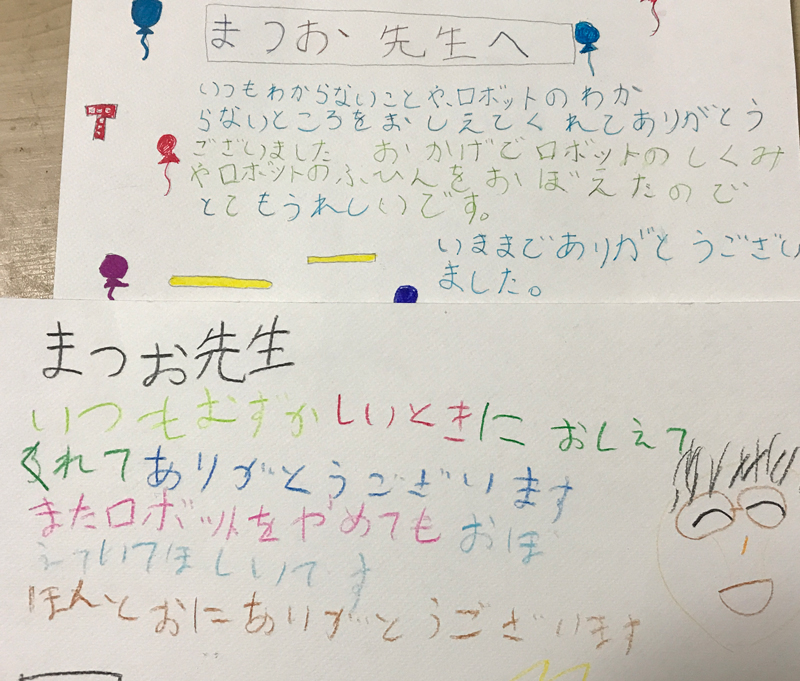 まつお 先生へ
いつもわからないことや、ロボットのわか
らないところをおしえてくれてありがとう
ございました おかげでロボットのしくみ
やロボットのぶひんをおぼえたので
とてもうれしいです。
いままでありがとうござい
ました。
まつお先生
いつもむずかしいときにおしえて
くれてありがとうございます
またロボットをやめてもおぼ
えていてほしいてす
ほんとおにありがとうございます